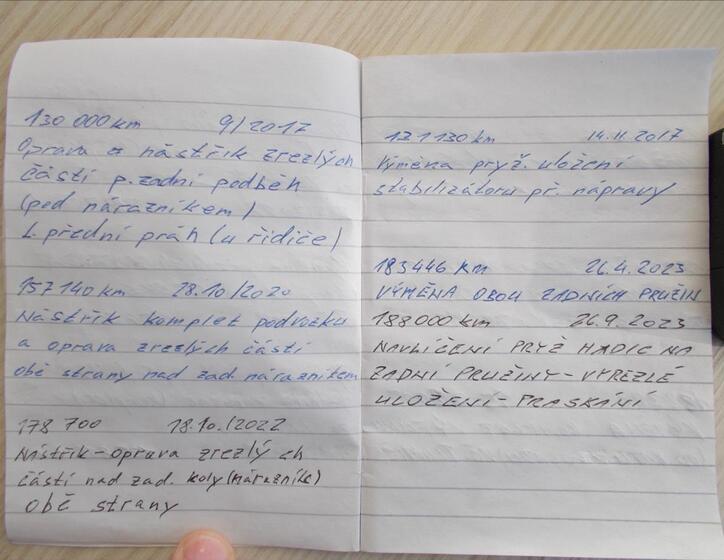 130 000 km 9/2017
Oprava a nástřik zrezlých
částí p. zadní podběh
(pod nárazníkem)
L. přední práh (u řidiče)
157 140 km 28.10/2020
Nástřik komplet podvozku
a oprava zrezlých částí
obě strany nad zad. nárazníkem
178 700 18.10./2022
Nástřik-oprava zrezlých
částí nad zad. koly (nárazník)
obě strany
131 130 km 14.11.2017
Výměna pryž. uložení
stabilizátoru př. nápravy
183446 km 26.4.2023
VÝMĚNA OBOU ZADNÍCH PRUŽIN
188000 km 26.9.2023
NAVLÍČENÍ PRYŽ HADIC NA
ZADNÍ PRUŽINY-VYREZLÉ
ULOŽENÍ-PRASKÁNÍ